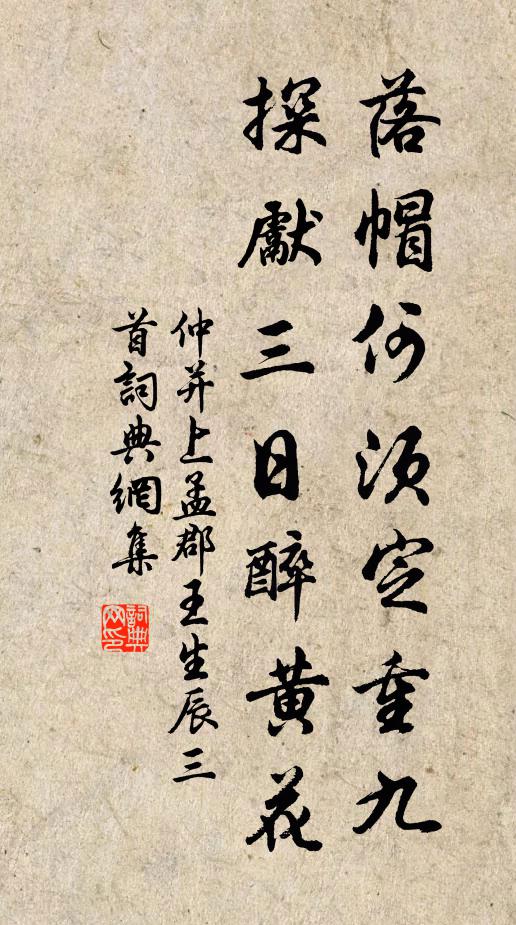 落帽何須定重九
探獻三日醉黃花
仲并上孟郡王生辰三
首詞典網集
詞典網印